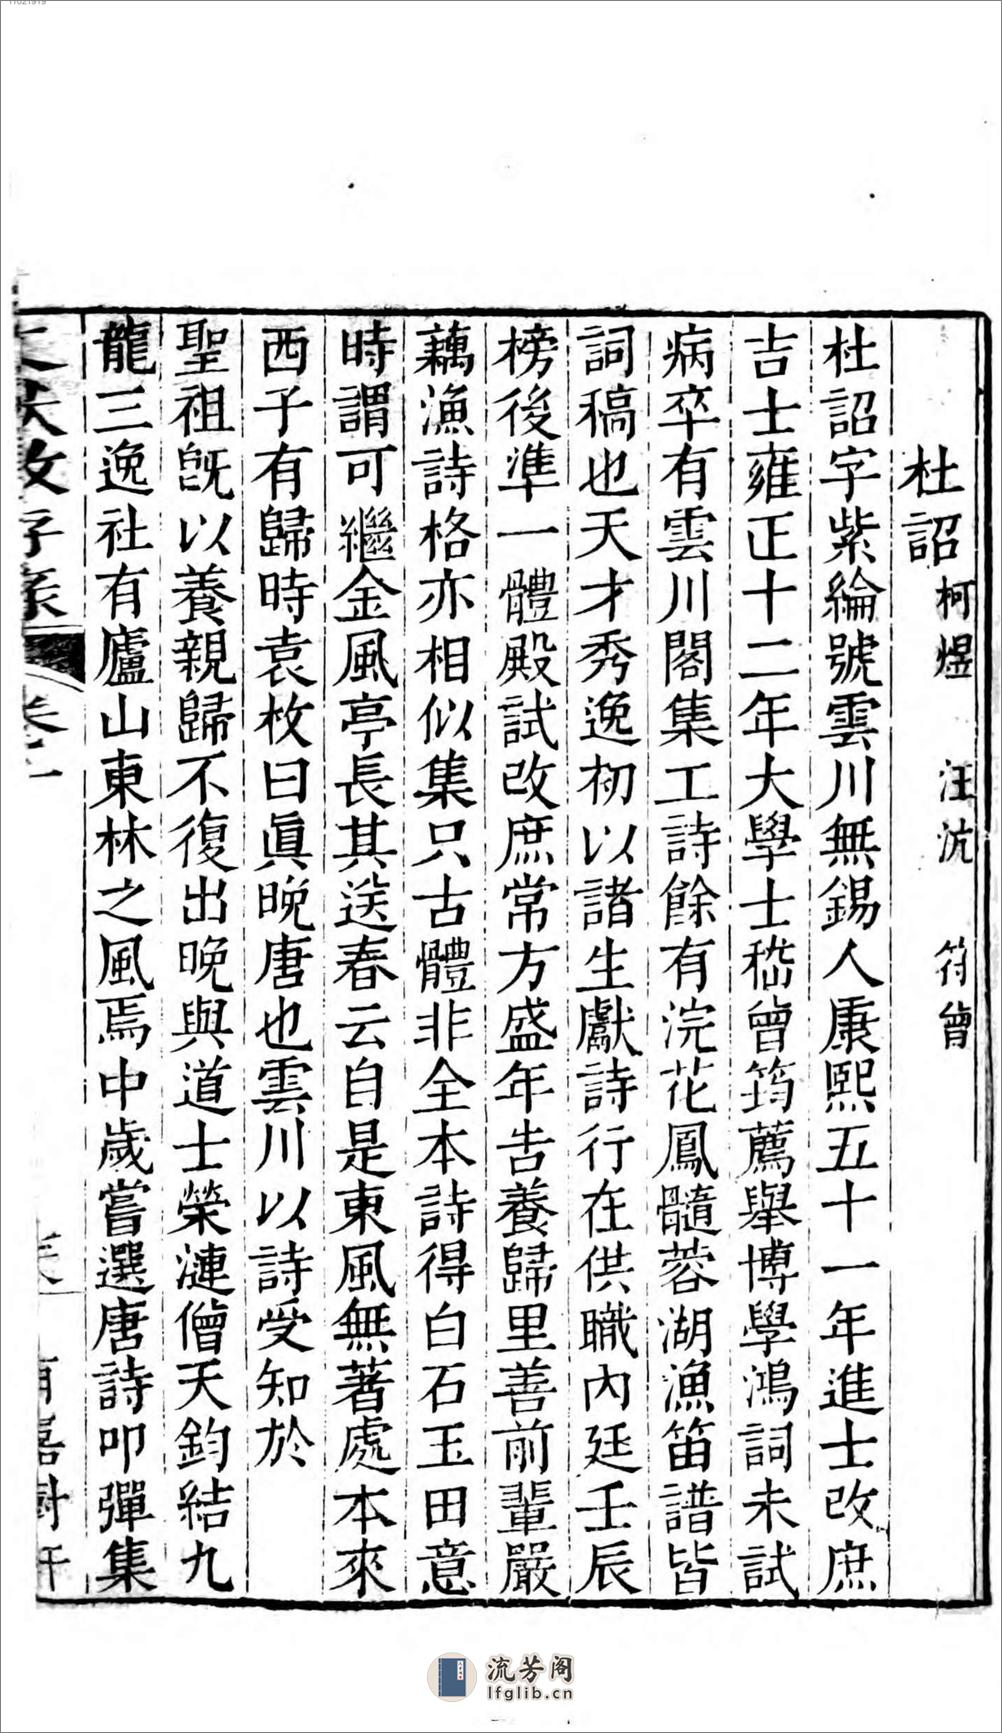 杜詔 柯煜 汪沆 符曾
杜詔字紫綸號雲川無錫人康熙五十一年進士改庶
吉士雍正十二年大學士嵇曾筠薦舉博學鴻詞未試
病卒有雲川閣集工詩餘有浣花鳳髓蓉湖漁笛譜皆
詞稿也天才秀逸初以諸生獻詩行在供職內廷壬辰
榜後準一體殿試改庶常方盛年告養歸里善前輩嚴
藕漁詩格亦相似集只古體非全本詩得白石玉田意
時謂可繼金風亭長其送春云自是東風無著處本來
西子有歸時袁枚曰眞晚唐也雲川以詩受知於
聖祖旣以養親歸不復出晚與道士榮漣僧天鈞結九
龍三逸社有廬山東林之風焉中歲嘗選唐詩叩彈集
流芳阁
lfglib.cn